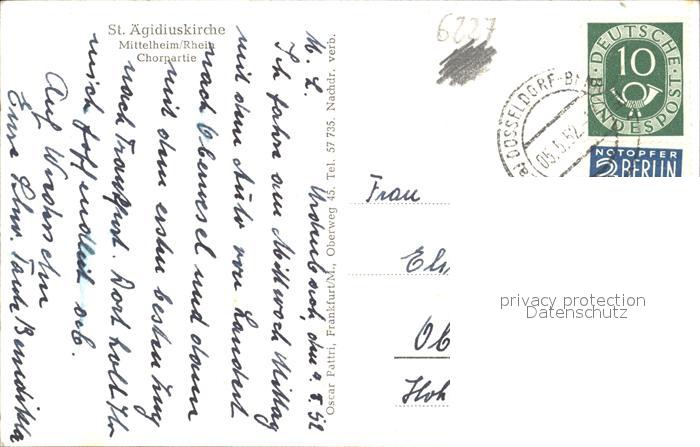 St. Ägidiuskirche
Mittelheim/Rhein
Chorpartie
6227
DEUTSCHE
10
BUNDESPOST
NOTOPFER
2 BERLIN
DÜSSELDORF
05.5.52.
Oscar Pattri, Frankfurt/M., Oberweg 45. Tel. 57 735. Nachdr. verb.
den 4. 5. 52
M. L.
Ich fahre am Mittwoch Mittag
mit dem Auto von
nach Oberwesel und dann
mit dem ersten besten Zug
nach Frankfurt. Dort holt Ihr
mich hoffendlich ab.
Auf Wiedersehn
Eure Tante Benedikta
Frau
Els
Ob
Hoh
privacy protection
Datenschutz